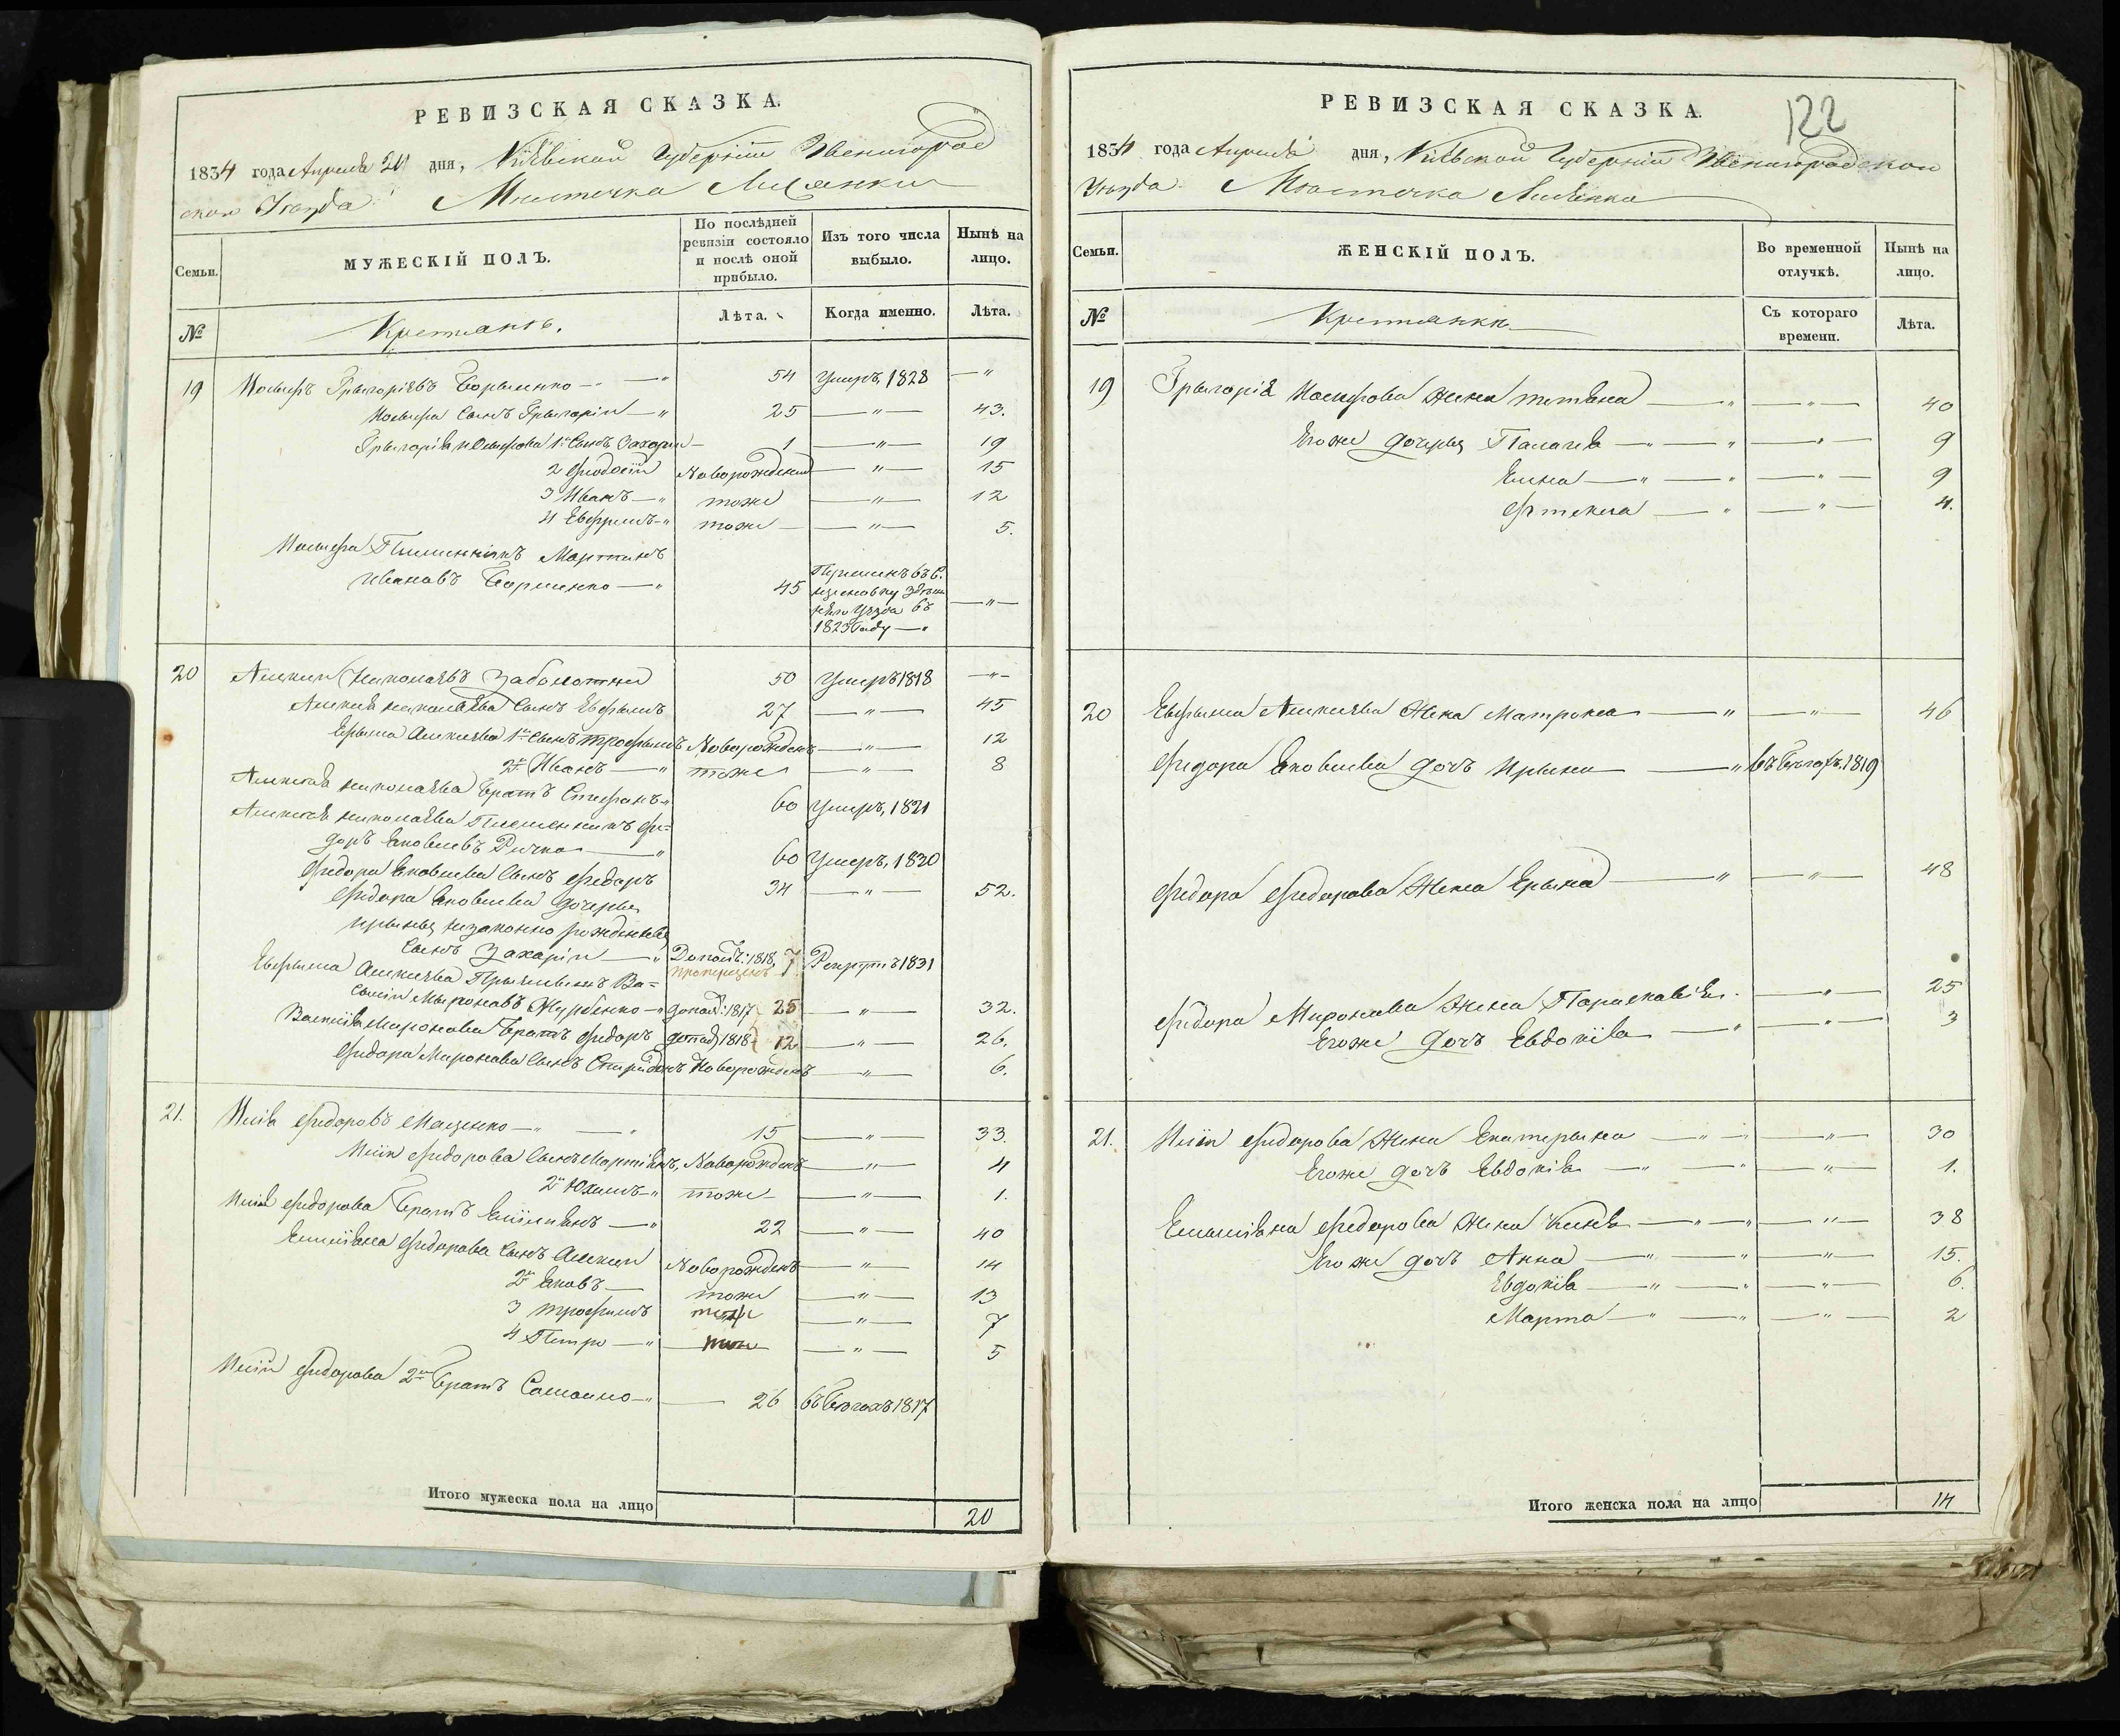 РЕВИЗСКАЯ СКАЗКА.
1834 года Апреля 20 дня, Кіевской Губерніи Звенигород
ской Уезда Мистечка Лисянки
Семьи.
МУЖЕСКІЙ ПОЛЪ.
По послѣдней ревизіи состояло и послѣ оной прибыло.
Изъ того числа выбыло.
Нынѣ на лицо.
№
Крестьянъ.
Лѣта.
Когда именно.
Лѣта.
19 Іосифъ Грыгоріевъ 54 умеръ, 1828 — " —
Іосифа Сынъ Грыгорій — " 25 — " — 43.
Грыгорія Іосифова 1й Сынъ Захарій — 1 — " — 19
2 Феодосій Новорожденъ — " — 15
3 Иванъ — " тоже — " — 12
4 Евфримъ — " тоже — " — 5.
Іосифа Племенникъ Мартинъ
Ивановъ — " 45
1823 Году — " — " —
20 Алексей Николаевъ Заболотній 50 Умеръ 1818 — " —
Алексея Николаева Сынъ Ефрымъ 27 — " — 45
Ефрыма Алексеева 1й Сынъ Трофымъ Новорожденъ — " — 12
2й Иванъ — " тоже — " — 8
Алексея Николаева Братъ Стефанъ — " 60 умеръ, 1821
Алексея Николаева Племенникъ Фе=
доръ Яковлевъ Ричка — " 60 Умеръ, 1820
Федора Яковлева Сынъ Федоръ 34 — " — 52.
Федора Яковлева дочеры
Ирыны незаконно рожденный
Сынъ Захарій — " Допол: 1818, 7 Рекрутъ 1831
Ефрыма Алексеева Ва=
силій Мыроновъ допол: 1817 25 — " — 32.
Василія Миронова Братъ Федоръ допол 1818 12 — " — 26.
Федора Миронова Сынъ Спиридонъ Новорожденъ — " — 6.
21. Илія Федоровъ Маценко — " — " 15 — " — 33.
Иліи Федорова Сынъ Мартинъ, Новорожденъ — " — 4
2й Юхимъ — " тоже — " — 1.
Иліи Федорова Братъ Емиліянъ — " 22 — " — 40
Емиліяна Федорова Сынъ Алексей Новорожденъ — " — 14
2й Яковъ — тоже — " — 13
3 Трофимъ тоже — " — 7
4 Петро — " тоже — " — 5
Иліи Федорова 2й Братъ Самоило — " — 26 въ бегахъ 1817
Итого мужеска пола на лицо 20
РЕВИЗСКАЯ СКАЗКА.
122
1834 года Апреля дня, Кіевской Губерніи Звенигородской
Уезда Мистечка Лисянки
Семьи.
ЖЕНСКІЙ ПОЛЪ.
Во временной отлучкѣ.
Нынѣ на лицо.
№
Крестьянки
Съ котораго времени.
Лѣта.
19 Грыгорія Іосифова Жена Тетяна — " — " — 40
Егоже дочеры Палагея — " — " — " — 9
Елена — " — " — " — 9
— " — " — 4.
20 Ефрыма Алексеева Жена Матрона — " — " — 46
Федора Яковлева дочъ Ирына — " въ бегахъ, 1819
Федора Федорова Жена Ерына — " — " — 48
Федора Миронова Жена Параскавія. — " — 25
Егоже дочъ Евдокія — " — " — 3
21. Иліи Федорова Жена Екатерына — " — " — 30
Егоже дочъ Евдокія — " — " — " — 1.
Емиліяна Федорова Жена — " — " — " — 38
Егоже дочъ Анна — " — " — " — 15.
Евдокія — " — " — " — 6.
Марта — " — " — " — 2
Итого женска пола на лицо 14